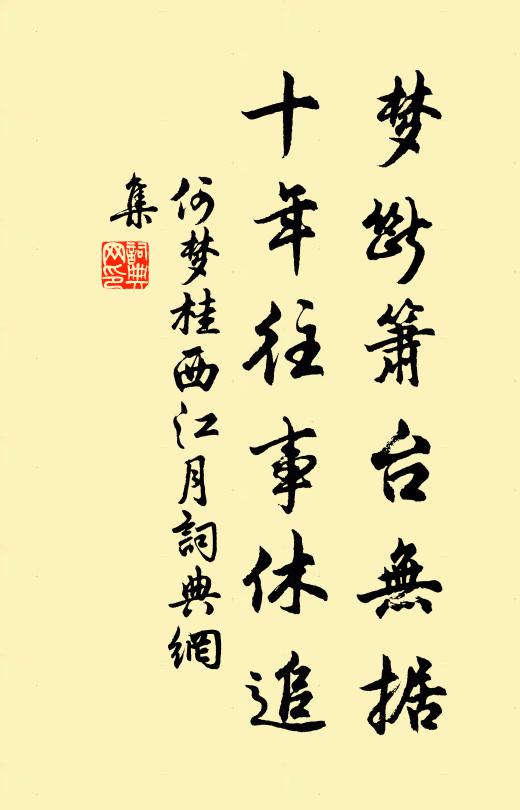 梦断箫台無据
十年往事休追
何梦桂西江月詞典網
集
詞典网印